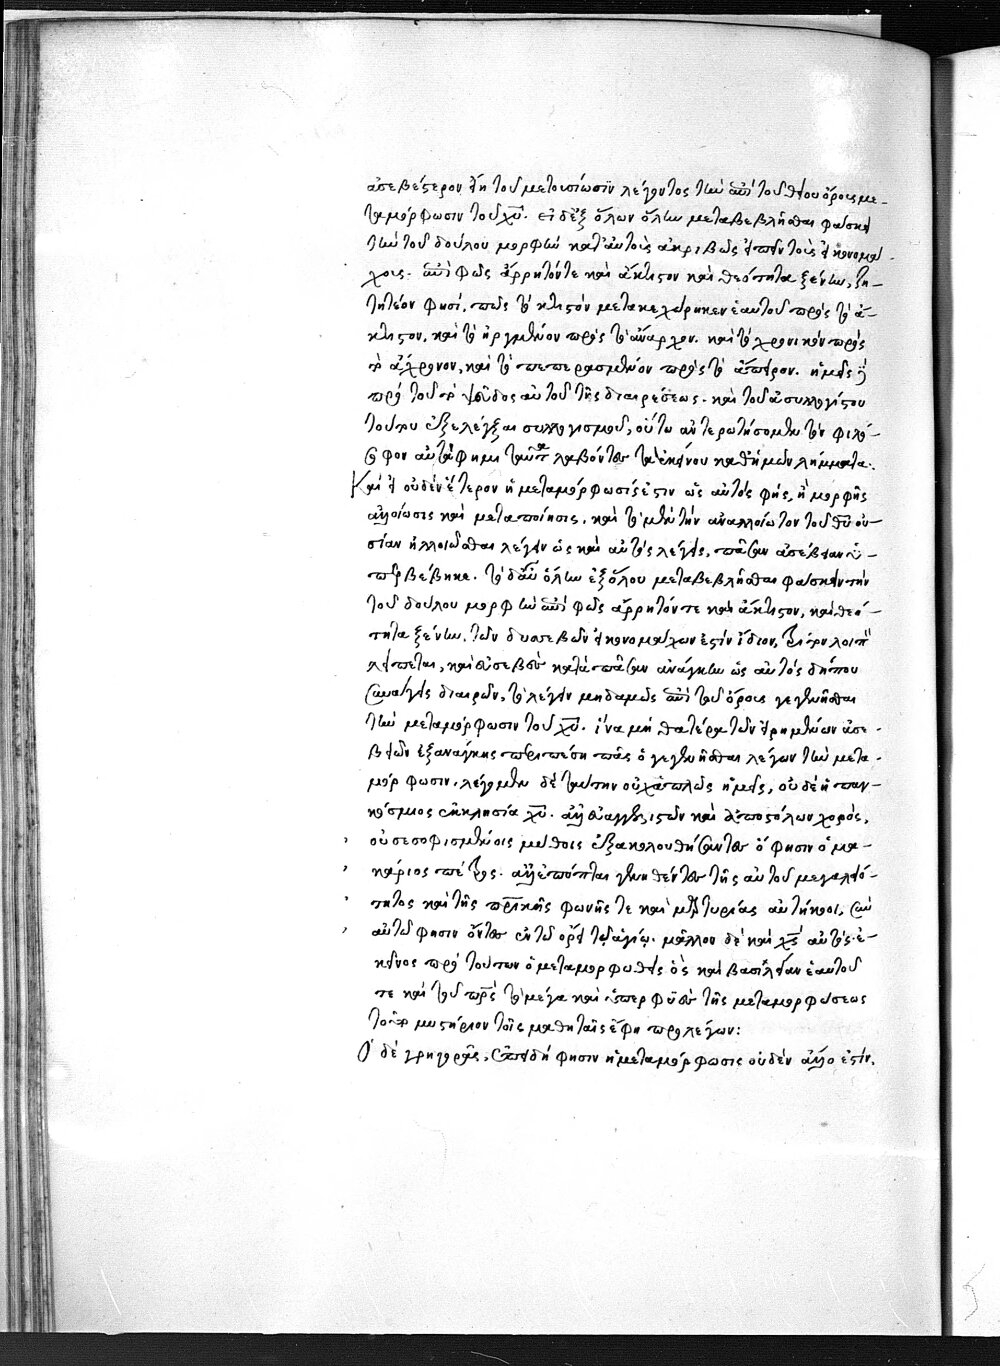 ἀσεβέστερον εἴη τοῦ μετουσίωσιν λέγοντος τὴν ἐπὶ τοῦ θείου ὄρους με-
ταμόρφωσιν τοῦ χῦ. εἰ δ' ἐξ ὅλων ὅλην μεταβεβλῆσθαι φάσκει
τὴν τοῦ δούλου μορφὴν κατ' αὐτοὺς ἀκριβῶς εἰπεῖν τοὺς εἰκονομά-
χους. ἐπὶ φῶς ἄρρητόν τε καὶ ἄκτιστον καὶ θεότητα ξένην, ζη-
τητέον φησί, πῶς τὸ κτιστὸν μετακεχώρηκεν ἑαυτοῦ πρὸς τὸ ἄ-
κτιστον, καὶ τὸ ἠργμένον πρὸς τὸ ἄναρχον. καὶ τὸ χρονικὸν πρὸς
τὸ ἄχρονον, καὶ τὸ πεπερασμένον πρὸς τὸ ἄπειρον. ἡμεῖς δὲ
πρὸ τοῦ τὸ ψεῦδος αὐτοῦ τῆς διαιρέσεως. καὶ τοῦ ἀσυλλογίστου
τούτου ἐξελέγξαι συλλογισμοῦ, οὕτω ἀντερωτήσομεν τὸν φιλό-
σοφον αὐτὰ φημὶ ταῦτα λαβόντες τὰ ἐκείνου καθ' ἡμῶν λήμματα.
Καὶ εἰ οὐδὲν ἕτερον ἡ μεταμόρφωσίς ἐστιν ὡς αὐτὸς φής, ἢ μορφῆς
ἀλλοίωσις καὶ μεταποίησις, καὶ τὸ μὲν τὴν ἀναλλοίωτον τοῦ θῦ οὐ-
σίαν ἠλλοιῶσθαι λέγειν ὡς καὶ αὐτὸς λέγεις, πᾶσαν ἀσέβειαν ὑ-
περβέβηκε. τὸ δ' αὖ ὅλην ἐξ ὅλου μεταβεβλῆσθαι φάσκειν τὴν
τοῦ δούλου μορφὴν ἐπὶ φῶς ἄρρητόν τε καὶ ἄκτιστον, καὶ θεό-
τητα ξένην, τῶν δυσσεβῶν εἰκονομάχων ἐστὶν ἴδιον, τρίτον λοιπὸν
λείπεται, καὶ εὐσεβοῦν κατὰ πᾶσαν ἀνάγκην ὡς αὐτὸς δήπου
συνάγεις διαιρῶν, τὸ λέγειν μηδαμῶς ἐπὶ τοῦ ὄρους γεγενῆσθαι
τὴν μεταμόρφωσιν τοῦ χῦ. ἵνα μὴ θατέρα τῶν εἰρημένων ἀσε-
βειῶν ἐξ ἀνάγκης περιπέσῃ πᾶς ὁ γεγενῆσθαι λέγων τὴν μετα-
μόρφωσιν. λέγομεν δὲ ταύτην οὐχ ἁπλῶς ἡμεῖς, οὐδὲ ἡ παγ-
κόσμιος ἐκκλησία χῦ. ἀλλ' εὐαγγελιστῶν καὶ ἀποστόλων χορός,
οὐ σεσοφισμένοις μύθοις ἐξακολουθήσαντες ὅ φησιν ὁ μα-
κάριος πέτρος. ἀλλ' ἐπόπται γενηθέντες τῆς αὐτοῦ μεγαλειό-
τητος καὶ τῆς πρικῆς φωνῆς τε καὶ μαρτυρίας αὐτήκοοι, σὺν
αὐτῷ φησιν ὄντες ἐν τῷ ὄρει τῷ ἁγίῳ. μᾶλλον δὲ καὶ χς αὐτὸς ἐ-
κεῖνος πρὸ τούτων ὁ μεταμορφωθεὶς ὃς καὶ βασιλείαν ἑαυτοῦ
τε καὶ τοῦ πρς τὸ μέγα καὶ ὑπερφυὲς τῆς μεταμορφώσεως
τοῦτο μυστήριον τοῖς μαθηταῖς ἔφη προλέγων:
Ὁ δὲ γρηγορᾶς, ἐπειδή φησιν ἡ μεταμόρφωσις οὐδὲν ἄλλο ἐστίν,